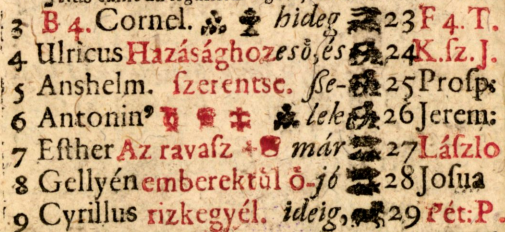 3 B 4. Cornel. hideg 23 F 4. T.
4 Ulricus Hazásághoz esö, és 24 K. sz. J.
5 Anshelm. szerentse. sze- 25 Prosp:
6 Antonin' lek 26 Jerem:
7 Esther Az ravasz már 27 László
8 Gellyén emberektül ö- jó 28 Josua
9 Cyrillus rizkegyél. ideig, 29 Pét: P.